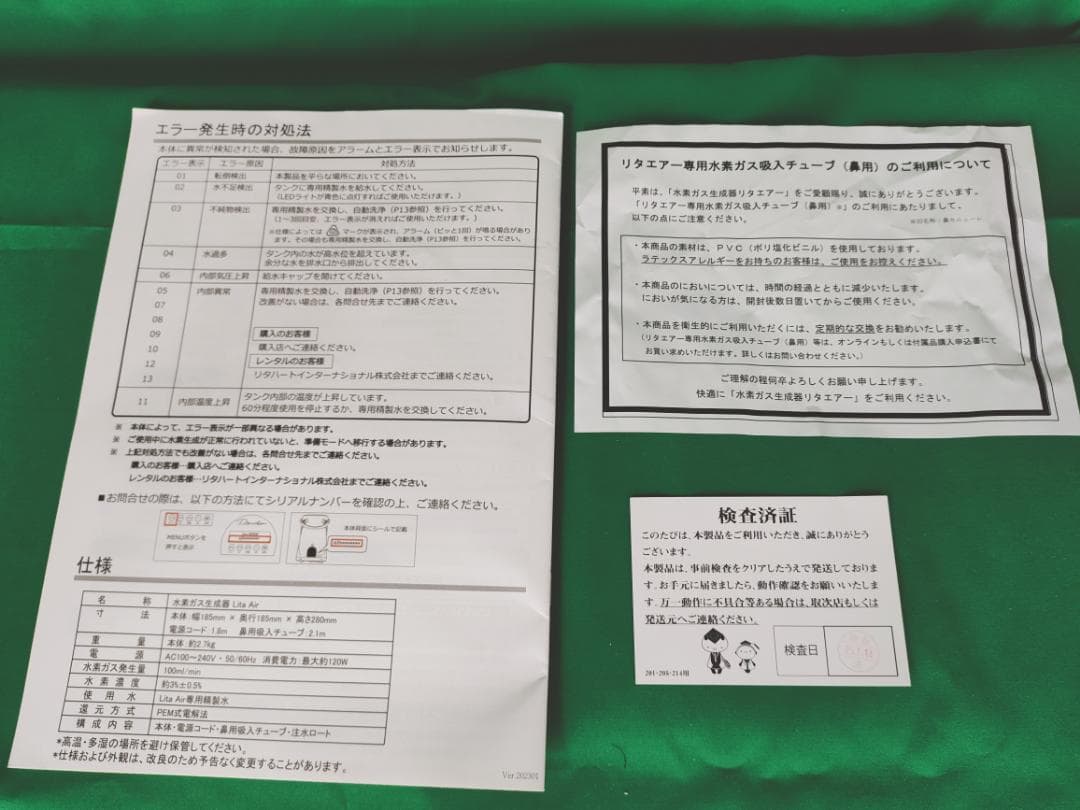 エラー発生時の対処法
本体に異常が検知された場合、故障原因をアラームとエラー表示でお知らせします。
エラー表示 エラー原因 対処方法
01 転倒検出 本製品を平らな場所においてください。
02 水不足検出 タンクに専用精製水を給水してください。
(LEDライトが青色に点灯すればご使用いただけます。)
03 不純物検出 専用精製水を交換し、自動洗浄（P13参照）を行ってください。
（1～3回目安、エラー表示が消えればご使用いただけます。）
※仕様によっては マークが表示され、アラーム（ピッと1回）が鳴る場合があり
ます。その場合も専用精製水を交換し、自動洗浄（P13参照）を行ってください。
04 水過多 タンク内の水が高水位を超えています。
余分な水を排水口から排出してください。
06 内部気圧上昇 給水キャップを開けてください。
05 内部異常 専用精製水を交換し、自動洗浄（P13参照）を行ってください。
07 改善がない場合は、各問合せ先までご連絡ください。
08
09 購入のお客様
10 購入店へご連絡ください。
12 レンタルのお客様
13 リタハートインターナショナル株式会社までご連絡ください。
11 内部温度上昇 タンク内部の温度が上昇しています。
60分程度使用を停止するか、専用精製水を交換してください。
※ 本体によって、エラー表示が一部異なる場合があります。
※ ご使用中に水素生成が正常に行われていないと、準備モードへ移行する場合があります。
※ 上記対処方法でも改善がない場合は、各問合せ先までご連絡ください。
購入のお客様…購入店へご連絡ください。
レンタルのお客様…リタハートインターナショナル株式会社までご連絡ください。
■お問合せの際は、以下の方法にてシリアルナンバーを確認の上、ご連絡ください。
MENUボタンを
押すと表示
本体背面にシールで記載
仕様
名称 水素ガス生成器 Lita Air
寸法 本体:幅185mm × 奥行185mm × 高さ280mm
電源コード：1.8m 鼻用吸入チューブ：2.1m
重量 本体:約2.7kg
電源 AC100～240V・50/60Hz 消費電力 最大約120W
水素ガス発生量 100ml/min
水素濃度 約3%±0.5%
使用水 Lita Air専用精製水
還元方式 PEM式電解法
構成内容 本体・電源コード・鼻用吸入チューブ・注水ロート
*高温・多湿の場所を避け保管してください。
*仕様および外観は、改良のため予告なく変更することがあります。
リタエアー専用水素ガス吸入チューブ（鼻用）のご利用について
平素は、「水素ガス生成器リタエアー」をご愛顧賜り、誠にありがとうございます。
「リタエアー専用水素ガス吸入チューブ（鼻用）※」のご利用にあたりまして、
以下の点にご注意ください。
・本商品の素材は、ＰＶＣ（ポリ塩化ビニル）を使用しております。
ラテックスアレルギーをお持ちのお客様は、ご使用をお控えください。
・本商品のにおいについては、時間の経過とともに減少いたします。
においが気になる方は、開封後数日置いてからご使用ください。
・本商品を衛生的にご利用いただくには、定期的な交換をお勧めいたします。
（リタエアー専用水素ガス吸入チューブ（鼻用）等は、オンラインもしくは付属品購入申込書にて
お買い求めいただけます。詳しくはお問い合わせください。）
ご理解の程何卒よろしくお願い申し上げます。
快適に「水素ガス生成器リタエアー」をご利用ください。
検査済証
このたびは、本製品をご利用いただき、誠にありがとう
ございます。
本製品は、事前検査をクリアしたうえで発送しておりま
す。お手元に届きましたら、動作確認をお願いいたしま
す。万一動作に不具合等ある場合は、取次店もしくは
発送元へご連絡ください。
検査日